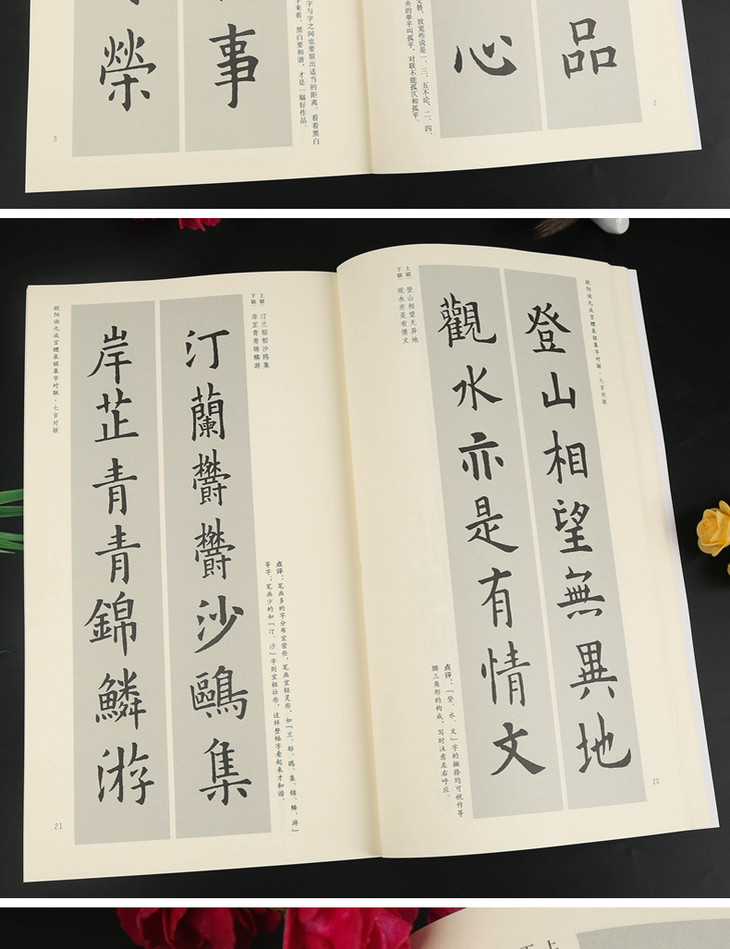 品
心
、三、五不论，二、四、
对联不能孤仄和孤平。
2
事
榮
字与字之间也要留出适当的距离。看看黑白
下来看，黑白要和谐，才是一幅好作品。
3
欧阳询九成宫醴泉铭集字对联·七言对联
登山相望無異地
觀水亦是有情文
上联：登山相望无异地
下联：观水亦是有情文
点评：「登、水、文」字的撇捺均可视作等
腰三角形的构成，写时注意左右呼应。
20
上联：汀兰郁郁沙鸥集
下联：岸芷青青锦鳞游
汀蘭欝欝沙鷗集
岸芷青青錦鱗游
点评：笔画多的字分布宜密些，笔画宜轻灵些，如「兰、郁、鸥、集、锦、鳞、游」
等字；笔画少的如「汀、沙」字则宜粗壮些，这样整幅字看起来才和谐。
欧阳询九成宫醴泉铭集字对联·七言对联
21